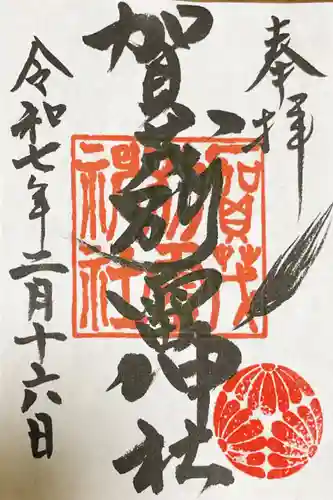 奉拝
加賀茂別雷神社
令和七年二月十六日
賀茂
別雷
神社